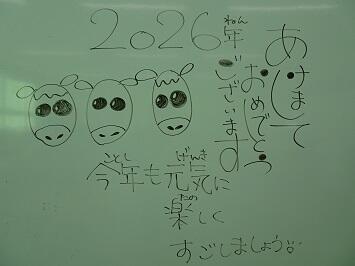 2026年
ねん
あけまして
おめでとう
ございます
ことし げんき
今年も元気に
たの
楽しく
すごしましょう